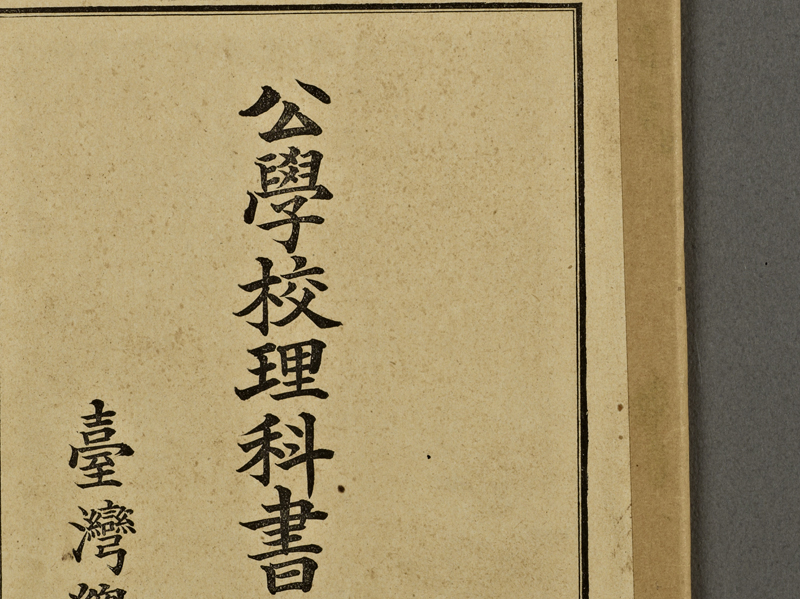 公學校理科書
臺灣